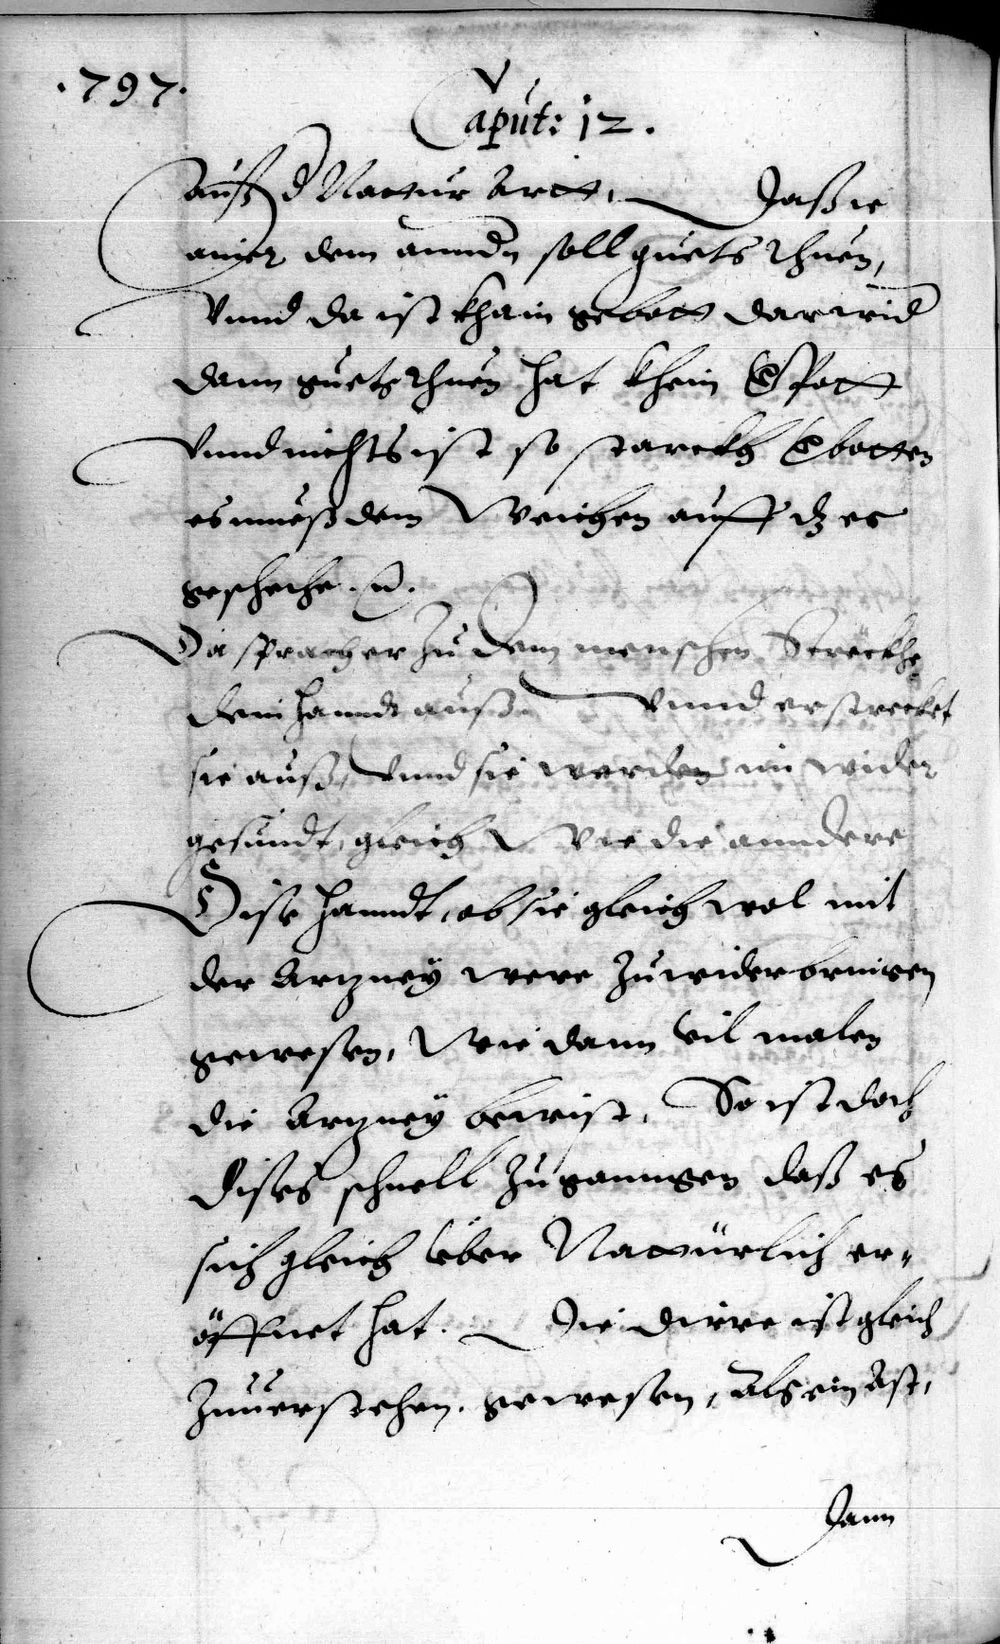 .797.
Caput: 12.
auß d Nattur Artt, Daß ie
ainer dem anndn soll guets thuen,
Vnnd da ist khain gebott darwid
dann guets thuen hat khein Spott
Vnnd nichts ist so starckh Ebotten
es mueß dem Weichen auff dz es
gescheche.
Da sprach er zu dem menschen Streckhe
dein hanndt auß Vnnd er strecket
sie auß, Vnnd sie warden im wider
gesundt, gleich Wie die anndere
Dise hanndt, ob sie gleich wol mit
der Artzney were zuwiderbringen
gewesen, Wie dann vil malen
die Artzney beweist, So ist doch
dises schnell zuganngen daß es
sich gleich über Nattürlich er-
öffnet hat. Die dürre ist gleich
zuuerstehen gewesen, Als ein Ast,
Dann